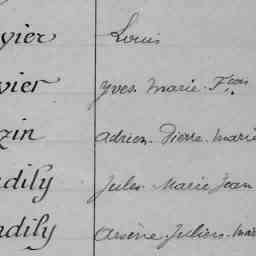 vier Louis
vier Yves Marie Fçois
zin Adrien Pierre Marie
dily Jules Marie Jean
ndily Arsène Juliers Mar